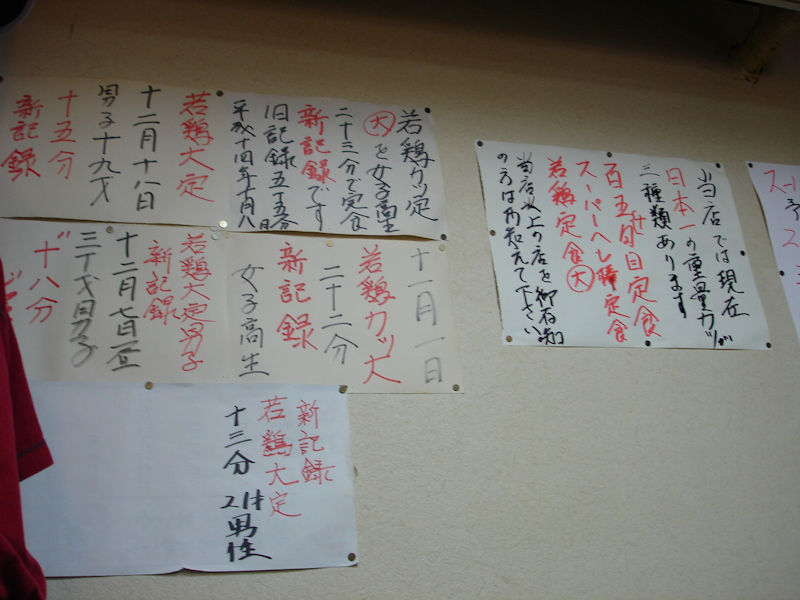 若鶏カツ定
大を女子高生
二十三分で定食
新記録です
旧記録五十五分
平成十四年十月八
若鶏大定
十二月十八日
男子十九才
十五分
新記録
十一月一日
若鶏カツ大
二十二分
新記録
女子高生
若鶏大定男子
新記録
十二月七日
三十才男子
十八分
新記録
若鶏大定
十三分
21才男性
当店では現在
日本一の重量カツが
三種類あります
百五十匁目定食
スーパーヘレ定食
若鶏定食大
当店以上の店を御存知
の方はお知えて下さい